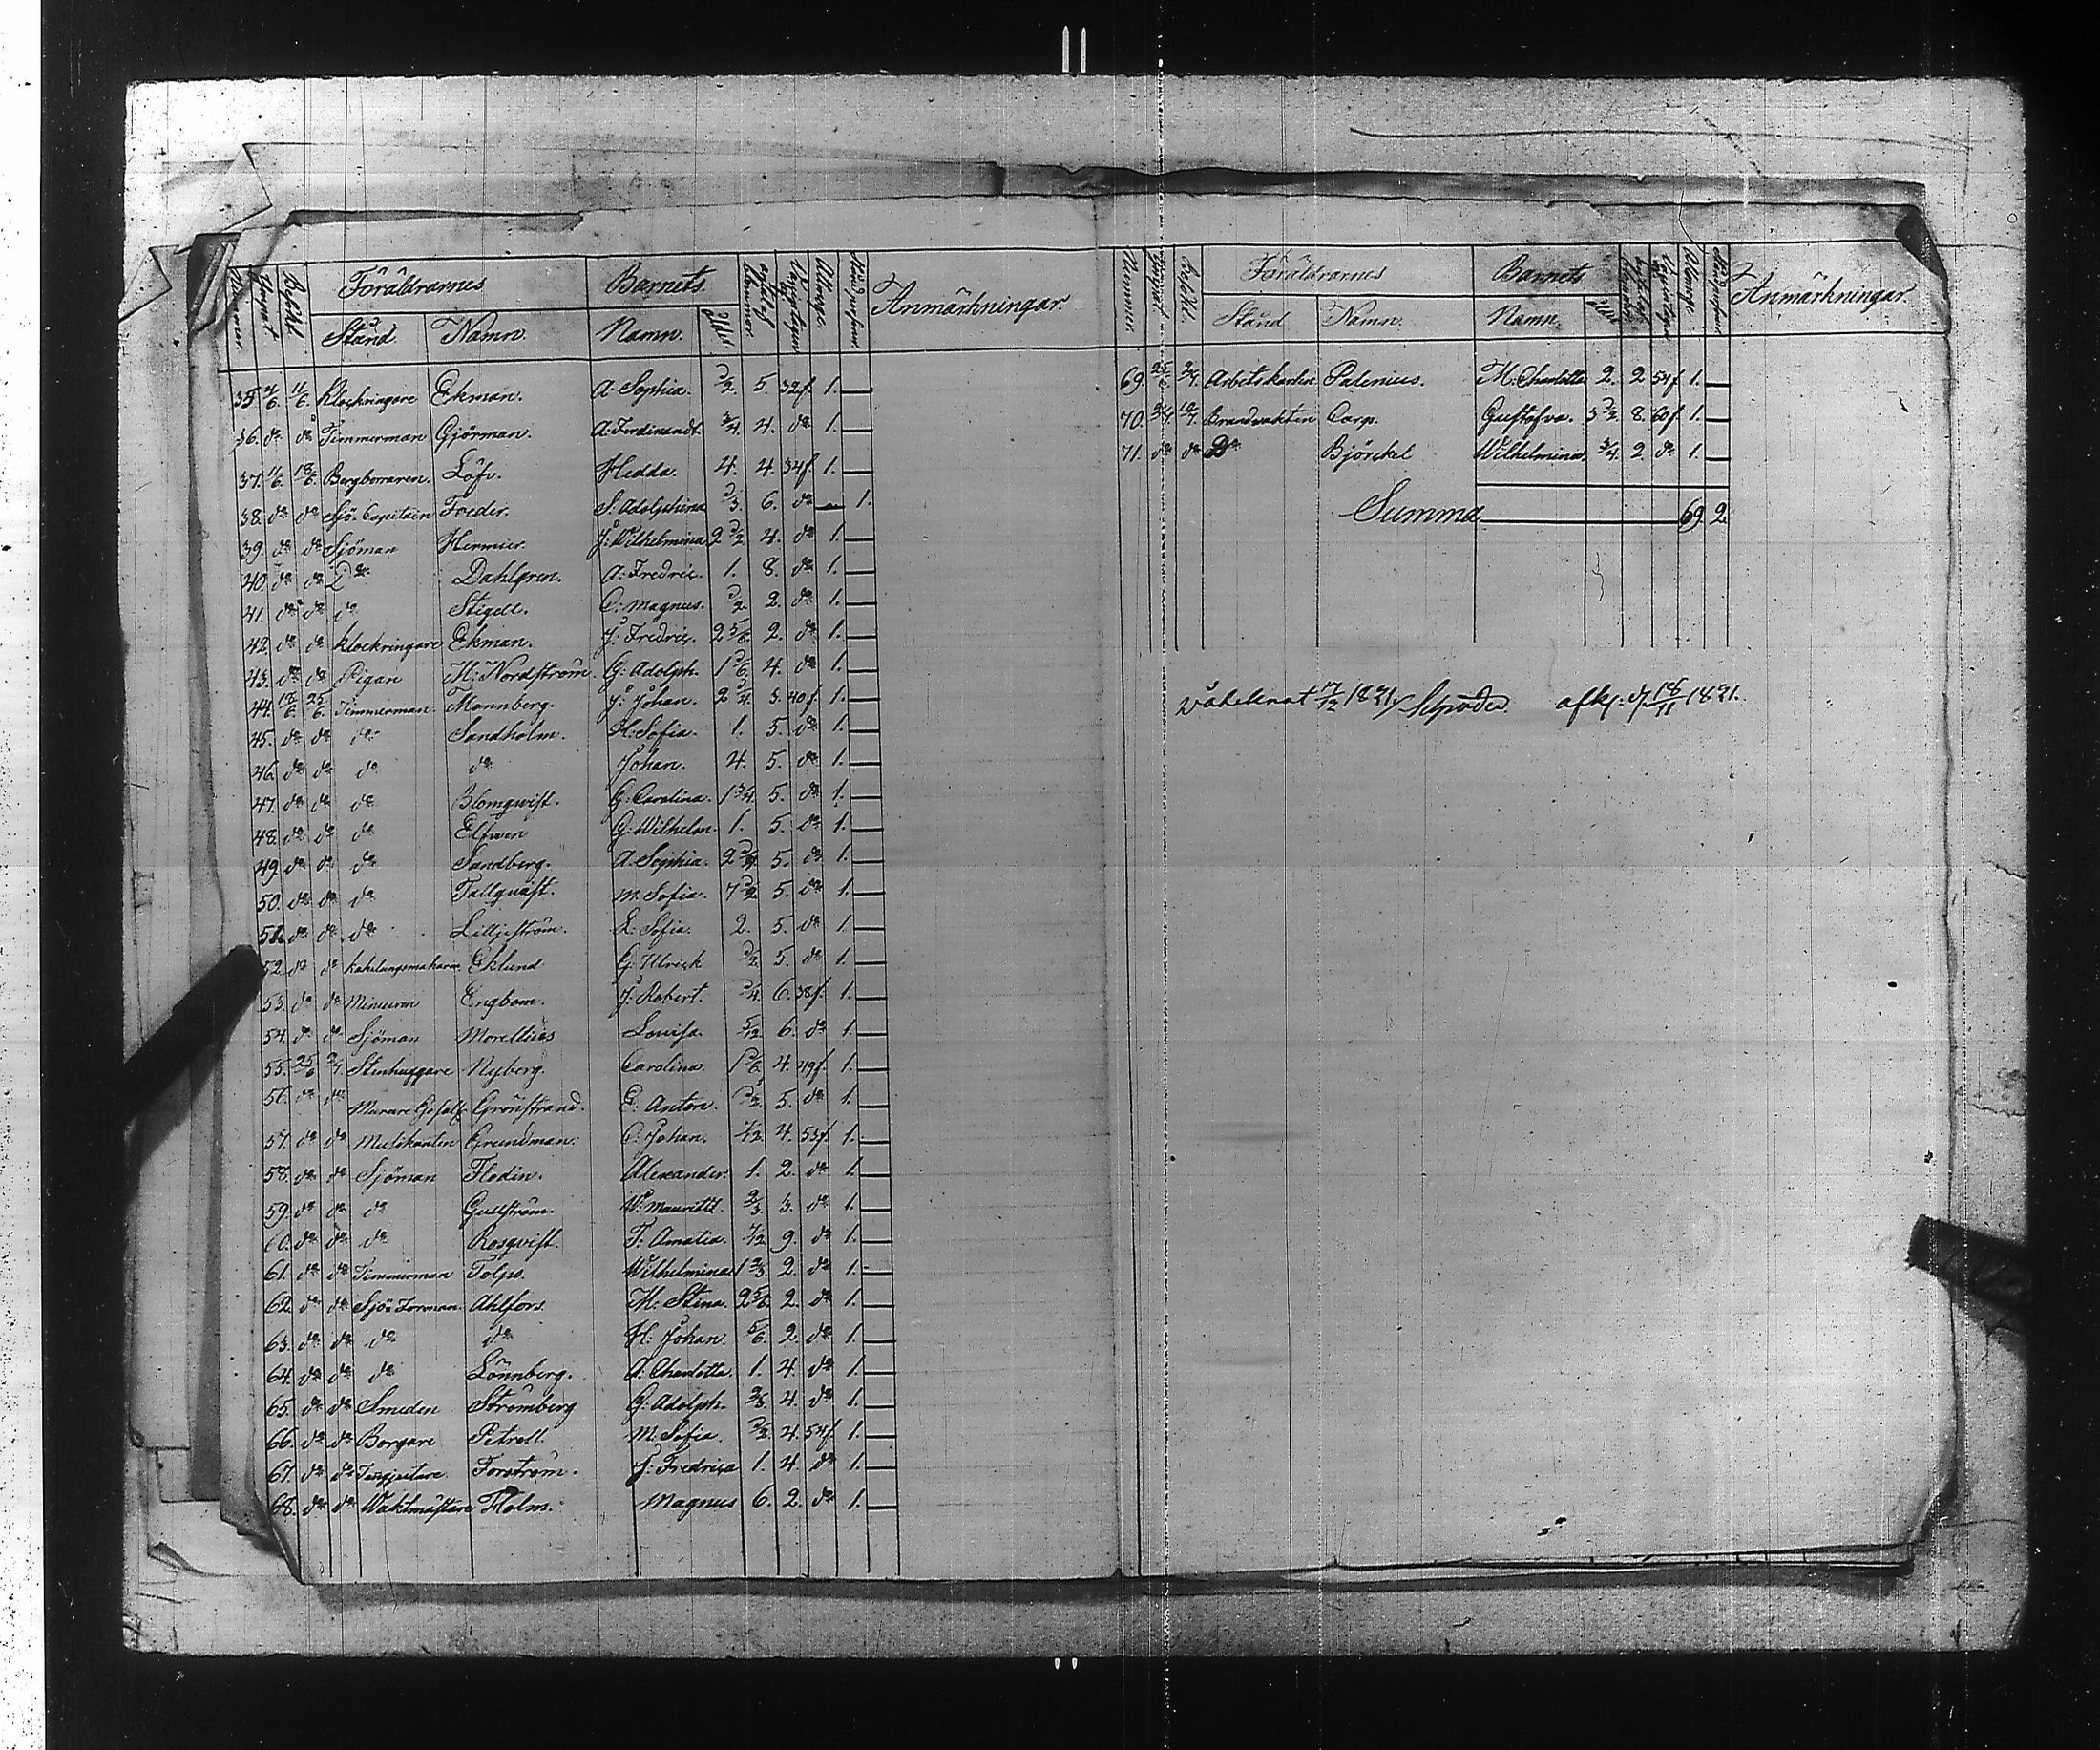 Nummer. Ympat Besökt. Föräldrarnes Barnets Anmärkningar.
Stånd. Namn. Namn. Ålder
35. 4/6. 11/6. Klockringare Ekman. A: Sophia. 1/2. 5. 32f. 1. —
36. do do Timmerman Gjörman. A: Ferdinandt 3/4. 4. do 1. —
37. 11/6. 18/6. Bergborraren. Löfv. Hedda. 4. 4. 34f. 1. —
38. do do Sjö-Capitain Foeder. S: Adolphina 1/3. 6. do — 1.
39. do do Sjöman Hermier. J: Wilhelmina. 2 1/2 4. do 1. —
40. do do Do Dahlgren. A: Fredric. 1. 8. do 1. —
41. do do do Stigell. C: Magnus. 1/2. 2. do 1. —
42. do do Klockringare Ekman. J: Fredric. 2 5/6. 2. do 1. —
43. do do Pigan H: Nordström. G: Adolph. 1 1/6. 4. do 1. —
44. 18/6. 25/6. Timmerman Monnberg. J: Johan. 2 1/4. 3. 40f. 1. —
45. do do do Sandholm. H: Sofia. 1. 5. do 1. —
46. do do do do Johan. 4. 5. do 1. —
47. do do do Blomqvist. G: Carolina. 1 3/4. 5. do 1. —
48. do do do Elfwen G: Wilhelm. 1. 5. do 1. —
49. do do do Sandberg. A. Sophia. 2 3/4. 5. do 1. —
50. do do do Tallqvist. M. Sofia. 7 1/2. 5. do 1. —
51. do do do Lilljeström. L: Sofia. 2. 5. do 1. —
52. do do Kakelungsmakare Eklund G: Ulrick 1/2. 5. do 1. —
53. do do Mineuren Engbom. J: Robert. 3/4. 6. 38f. 1. —
54. do do Sjöman Morellius Lovisa. 5/12. 6. do 1. —
55. 25/6 2/7. Stenhuggare Nyberg. Carolina. 1 1/6. 4. 49f. 1. —
56. do do Murare Gesäll Grönstrand. E: Anton. 1 1/2. 5. do 1. —
57. do do Musikanten Grundman. C: Johan. 7/12. 4. 53f. 1. —
58. do do Sjöman Flodin. Alexander. 1. 2. do 1. —
59. do do do Gullström. W: Mauritz. 2/3. 3. do 1. —
60. do do do Rosqvist. T: Amalia. 7/12 9. do 1. —
61. do do Timmerman Tolpo. Wilhelmina 1 2/3. 2. do 1. —
62. do do Sjö-Torman Ahlfors. H: Stina. 2 5/6. 2. do 1. —
63. do do do do H: Johan. 5/6. 2. do 1. —
64. do do do Lönnberg. A: Charlotta. 1. 4. do 1. —
65. do do Smeden Strömberg G: Adolph. 2/3. 4. do 1. —
66. do do Borgare Petrell. M: Sofia. 1/2. 4. 54f. 1. —
67. do do Forström. J: Fredrica 1. 4. do 1. —
68. do do Waktmästare Holm. Magnus 6. 2. do 1. —
Nummer. Besökt. Föräldrarnes Barnets Anmärkningar.
Stånd Namn. Namn.
69. 25/6. 2/7. Arbetskarlen Palenius. M: Charlotta 2. 2. 54f. 1. —
70. 2/7. 10/7. Brandvakten Carp. Gustafva. 3 1/2. 8. 60f. 1. —
71. do do Do Björckel Wilhelmina. 3/4. 2. do 1. —
Summa 69. 2.
1821. afk: d: 18/11 1821.